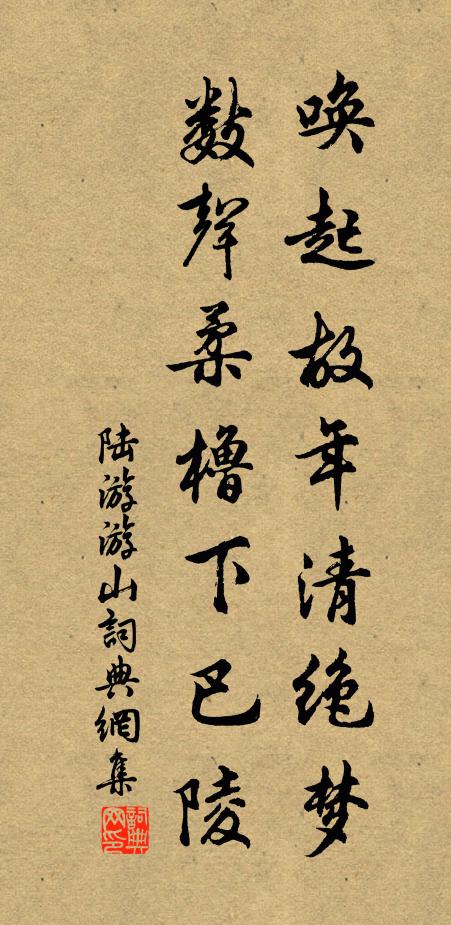 唤起故年清绝梦
数声柔橹下巴陵
陆游游山詞典網集
詞典網印